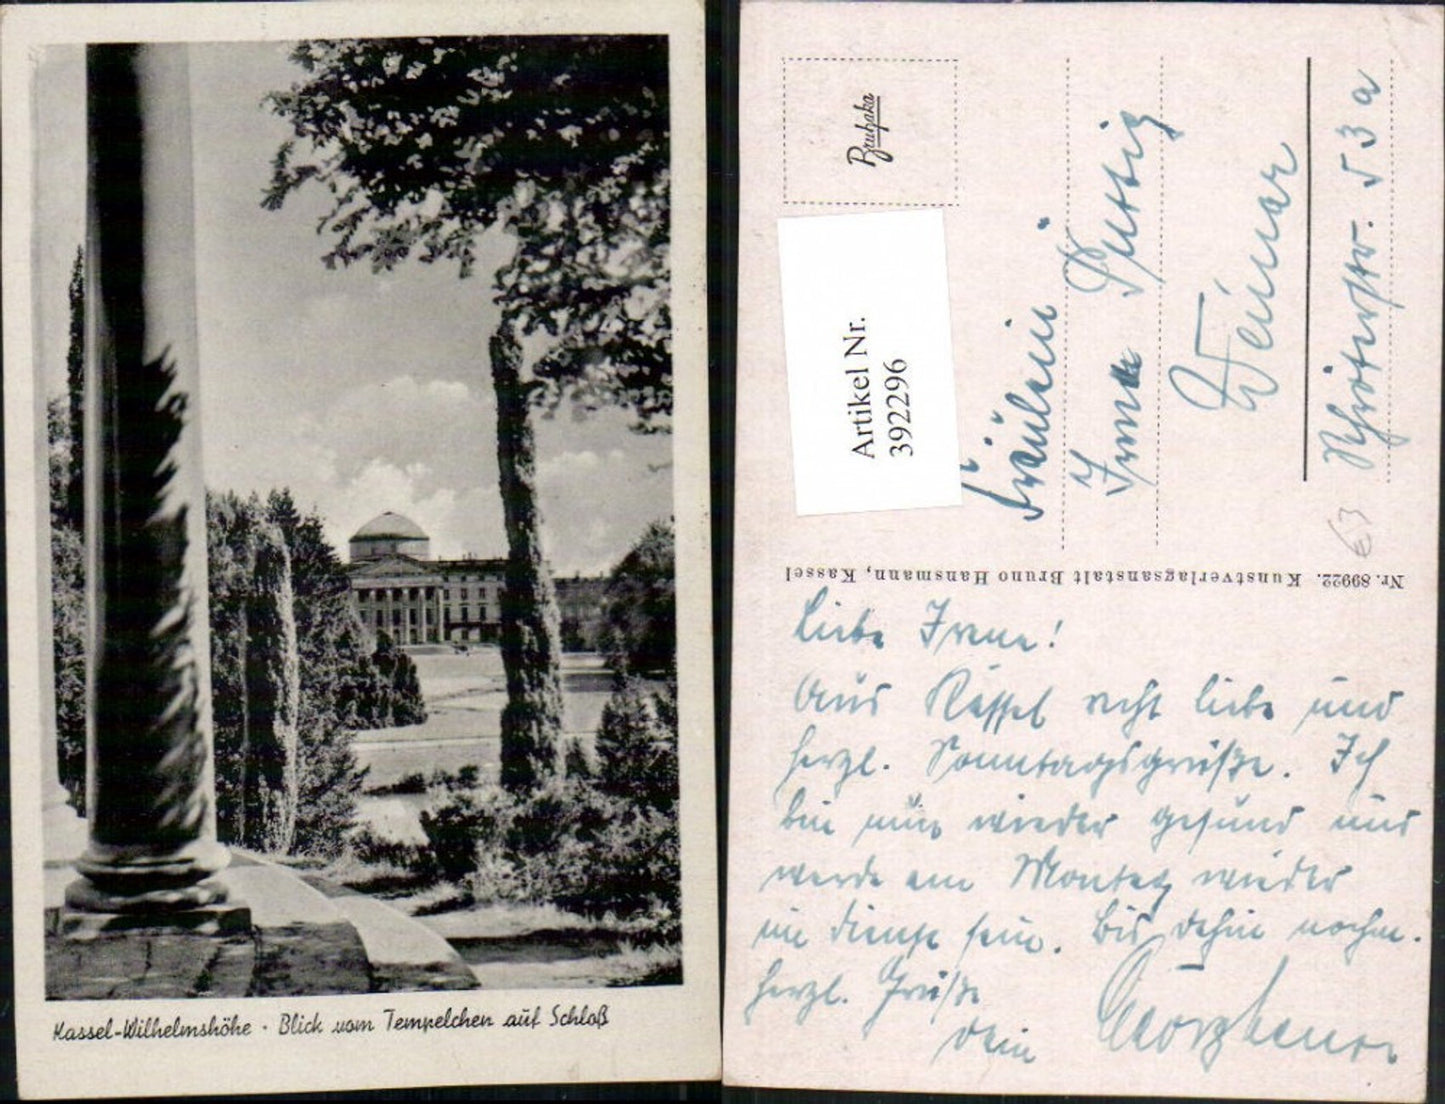 Kassel-Wilhelmshöhe · Blick vom Tempelchen auf Schloß
Bruhaka
Artikel Nr.
392296
Fräulein
Irene
Weimar
str. 53a
€3
Nr. 89922. Kunstverlagsanstalt Bruno Hansmann, Kassel
Liebe Irene!
Aus Kassel recht liebe und
herzl. Sonntagsgrüße. Ich
bin nun wieder gesund und
werde am Montag wieder
im Dienst sein. Bis dahin nochm.
herzl. Grüße
Dein